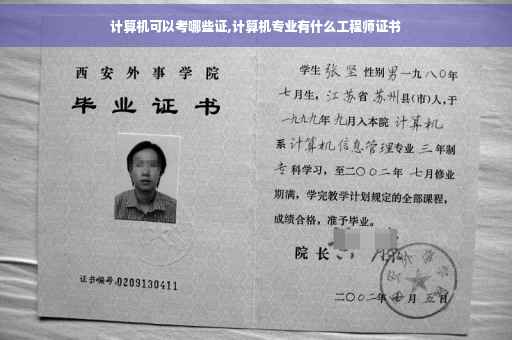 计算机可以考哪些证,计算机专业有什么工程师证书
西安外事学院
毕业证书
证书编号:0209130411
学生 张坚 性别 男 一九八〇年
七月生, 江苏省 苏州县(市)人,于
一九九九年 九月入本院 计算机
系 计算机信息管理专业 三 年制
专 科学习, 至二〇〇二年 七月修业
期满, 学完教学计划规定的全部课程,
成绩合格, 准予毕业。
院长
二〇〇二年 七 月 五 日